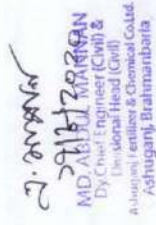 MD. ABDUL MANNAN
Dy. Chief Engineer (Civil) &
Divisional Head (Civil)
Ashuganj Fertilizer & Chemical Co.Ltd.
Ashuganj, Brahmanbaria